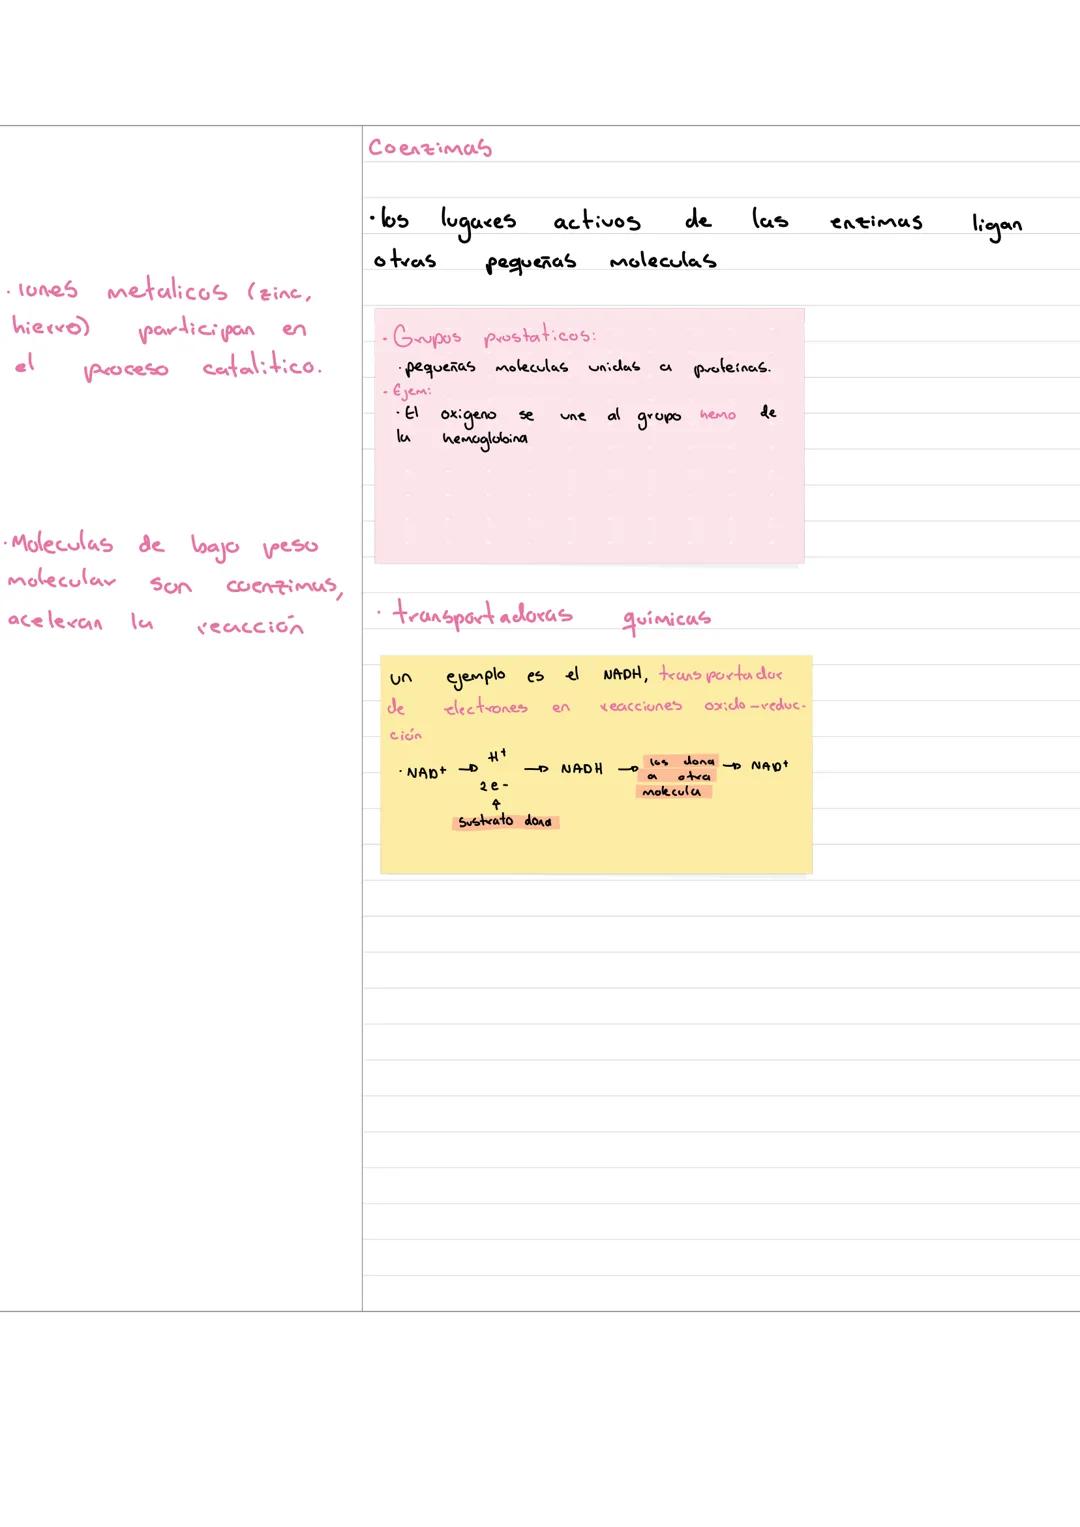 Coenzimas
· los lugares activos de las enzimas ligan
otras pequeñas moleculas
· iones metalicos (zinc,
hierro) participan en
el proceso catalitico.
- Grupos prostaticos:
· pequeñas moleculas unidas a proteínas.
- Ejem:
· El oxigeno se une al grupo hemo de
la hemoglobina
· Moleculas de bajo peso
molecular son coenzimas,
aceleran la reacción
· transportadoras químicas
un ejemplo es el NADH, transportador
de electrones en reacciones oxido-reduc-
ción
· NAD+ → H+ → NADH → los dona → NAD+
2e- a otra
↑ molecula
Sustrato dona